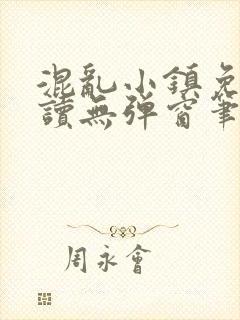 混亂小鎮免
讀無彈窗筆
周永會